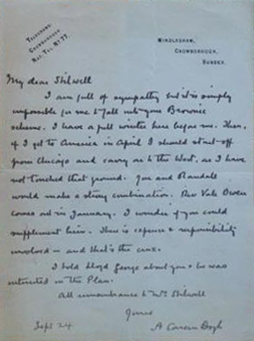 TELEGRAMS:
CROWBOROUGH
NAT. TEL. No 77.
WINDLESHAM,
CROWBOROUGH,
SUSSEX.
My dear Stilwell
I am full of sympathy but it is simply
impossible for me to fall into your Brownie
scheme. I have a full winter here before me. Then,
if I get to America in April I should start off
from Chicago and carry on to the West, as I have
not touched that ground. You and Randall
would make a strong combination. Rev Vale Owen
comes out in January. I wonder if you could
supplement him. There is expense & responsibility
involved – and that's the crux.
I told Lloyd George about you & he was
interested in the Plan.
All remembrance to Mrs Stilwell
Yours
Sept 24
A Conan Doyle